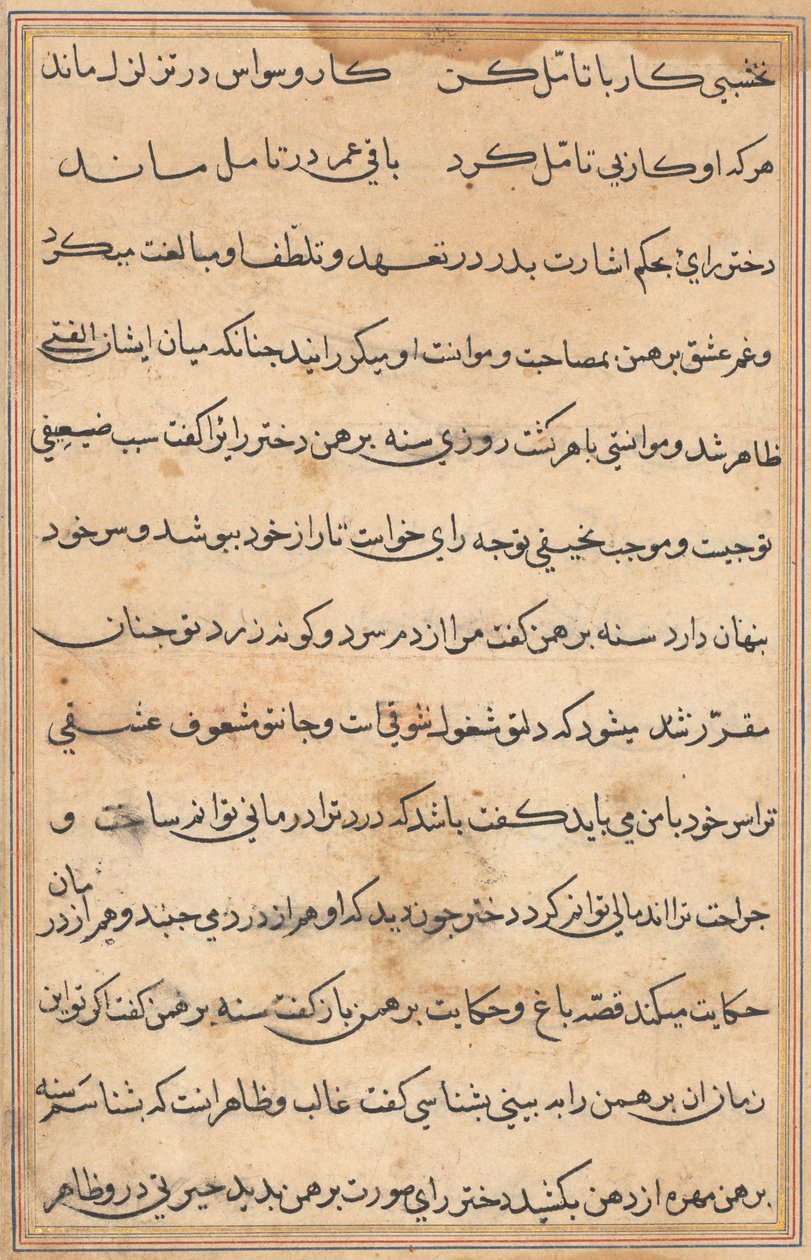 نخشبی کار با تامّل کن کار وسواس در تزلزل ماند
هر که او کار بی تامّل کرد باقی عمر در تامل ماند
دختر رای بحکم اشارت بدر در تعهد و تلطّف او مبالغت میکرد
و غم عشق برهمن بمصاحبت و موانست او میکررانید جنانکه میان ایشان الفتی
ظاهر شد و موانستی باهر کشت روزی سنه برهمن دختر رایرا کفت سبب ضیعیفی
توجیست و موجب نخیفی توجه رای خواست تا راز خود ببوشد و سر خود
بنهان دارد سنه برهمن کفت مرا از دم سرد و کونه زرد توجنان
مقرّر شد میشود که دلتو مشغول شوقی است و جانتو مشعوف عشقی
ترا سر خود با من می باید کفت باشد که درد ترا درمانی توانم ساخت و
جراحت ترا اندمالی توانم کرد دختر جون دید که او هم از درد می جنبد و هم از درمان
حکایت میکند قصّه باغ و حکایت برهمن باز کفت سنه برهمن کفت اکر تو این
زمان ان برهمن را به بینی بشناسی کفت غالب و ظاهر انست که بشناسم سنه
برهمن مهره از دهن بکشید دختر رای صورت برهمن بدید حیرتی درو ظاهر